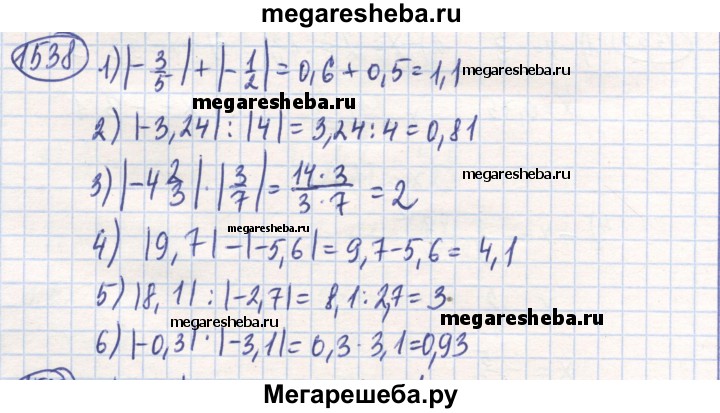 megaresheba.ru
1538 1) |-3/5| + |-1/2| = 0,6 + 0,5 = 1,1
megaresheba.ru
megaresheba.ru
2) |-3,24| : |4| = 3,24 : 4 = 0,81
3) |-4 2/3| · |3/7| = (14 · 3)/(3 · 7) = 2
megaresheba.ru
megaresheba.ru
4) |9,7| - |-5,6| = 9,7 - 5,6 = 4,1
5) |8,1| : |-2,7| = 8,1 : 2,7 = 3
megaresheba.ru
megaresheba.ru
6) |-0,3| · |-3,1| = 0,3 · 3,1 = 0,93
Мегарешеба.ру